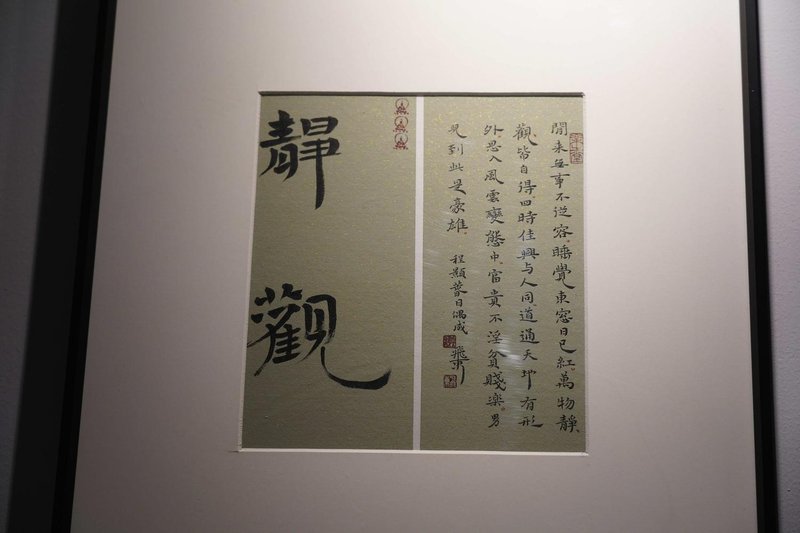 閒来無事不從容睡覺東窓日已紅萬物靜
觀皆自得四時佳興与人同道通天地有形
外思入風雲變態中富貴不淫貧賤樂男
児到此是豪雄
程顥 日偶成
靜觀